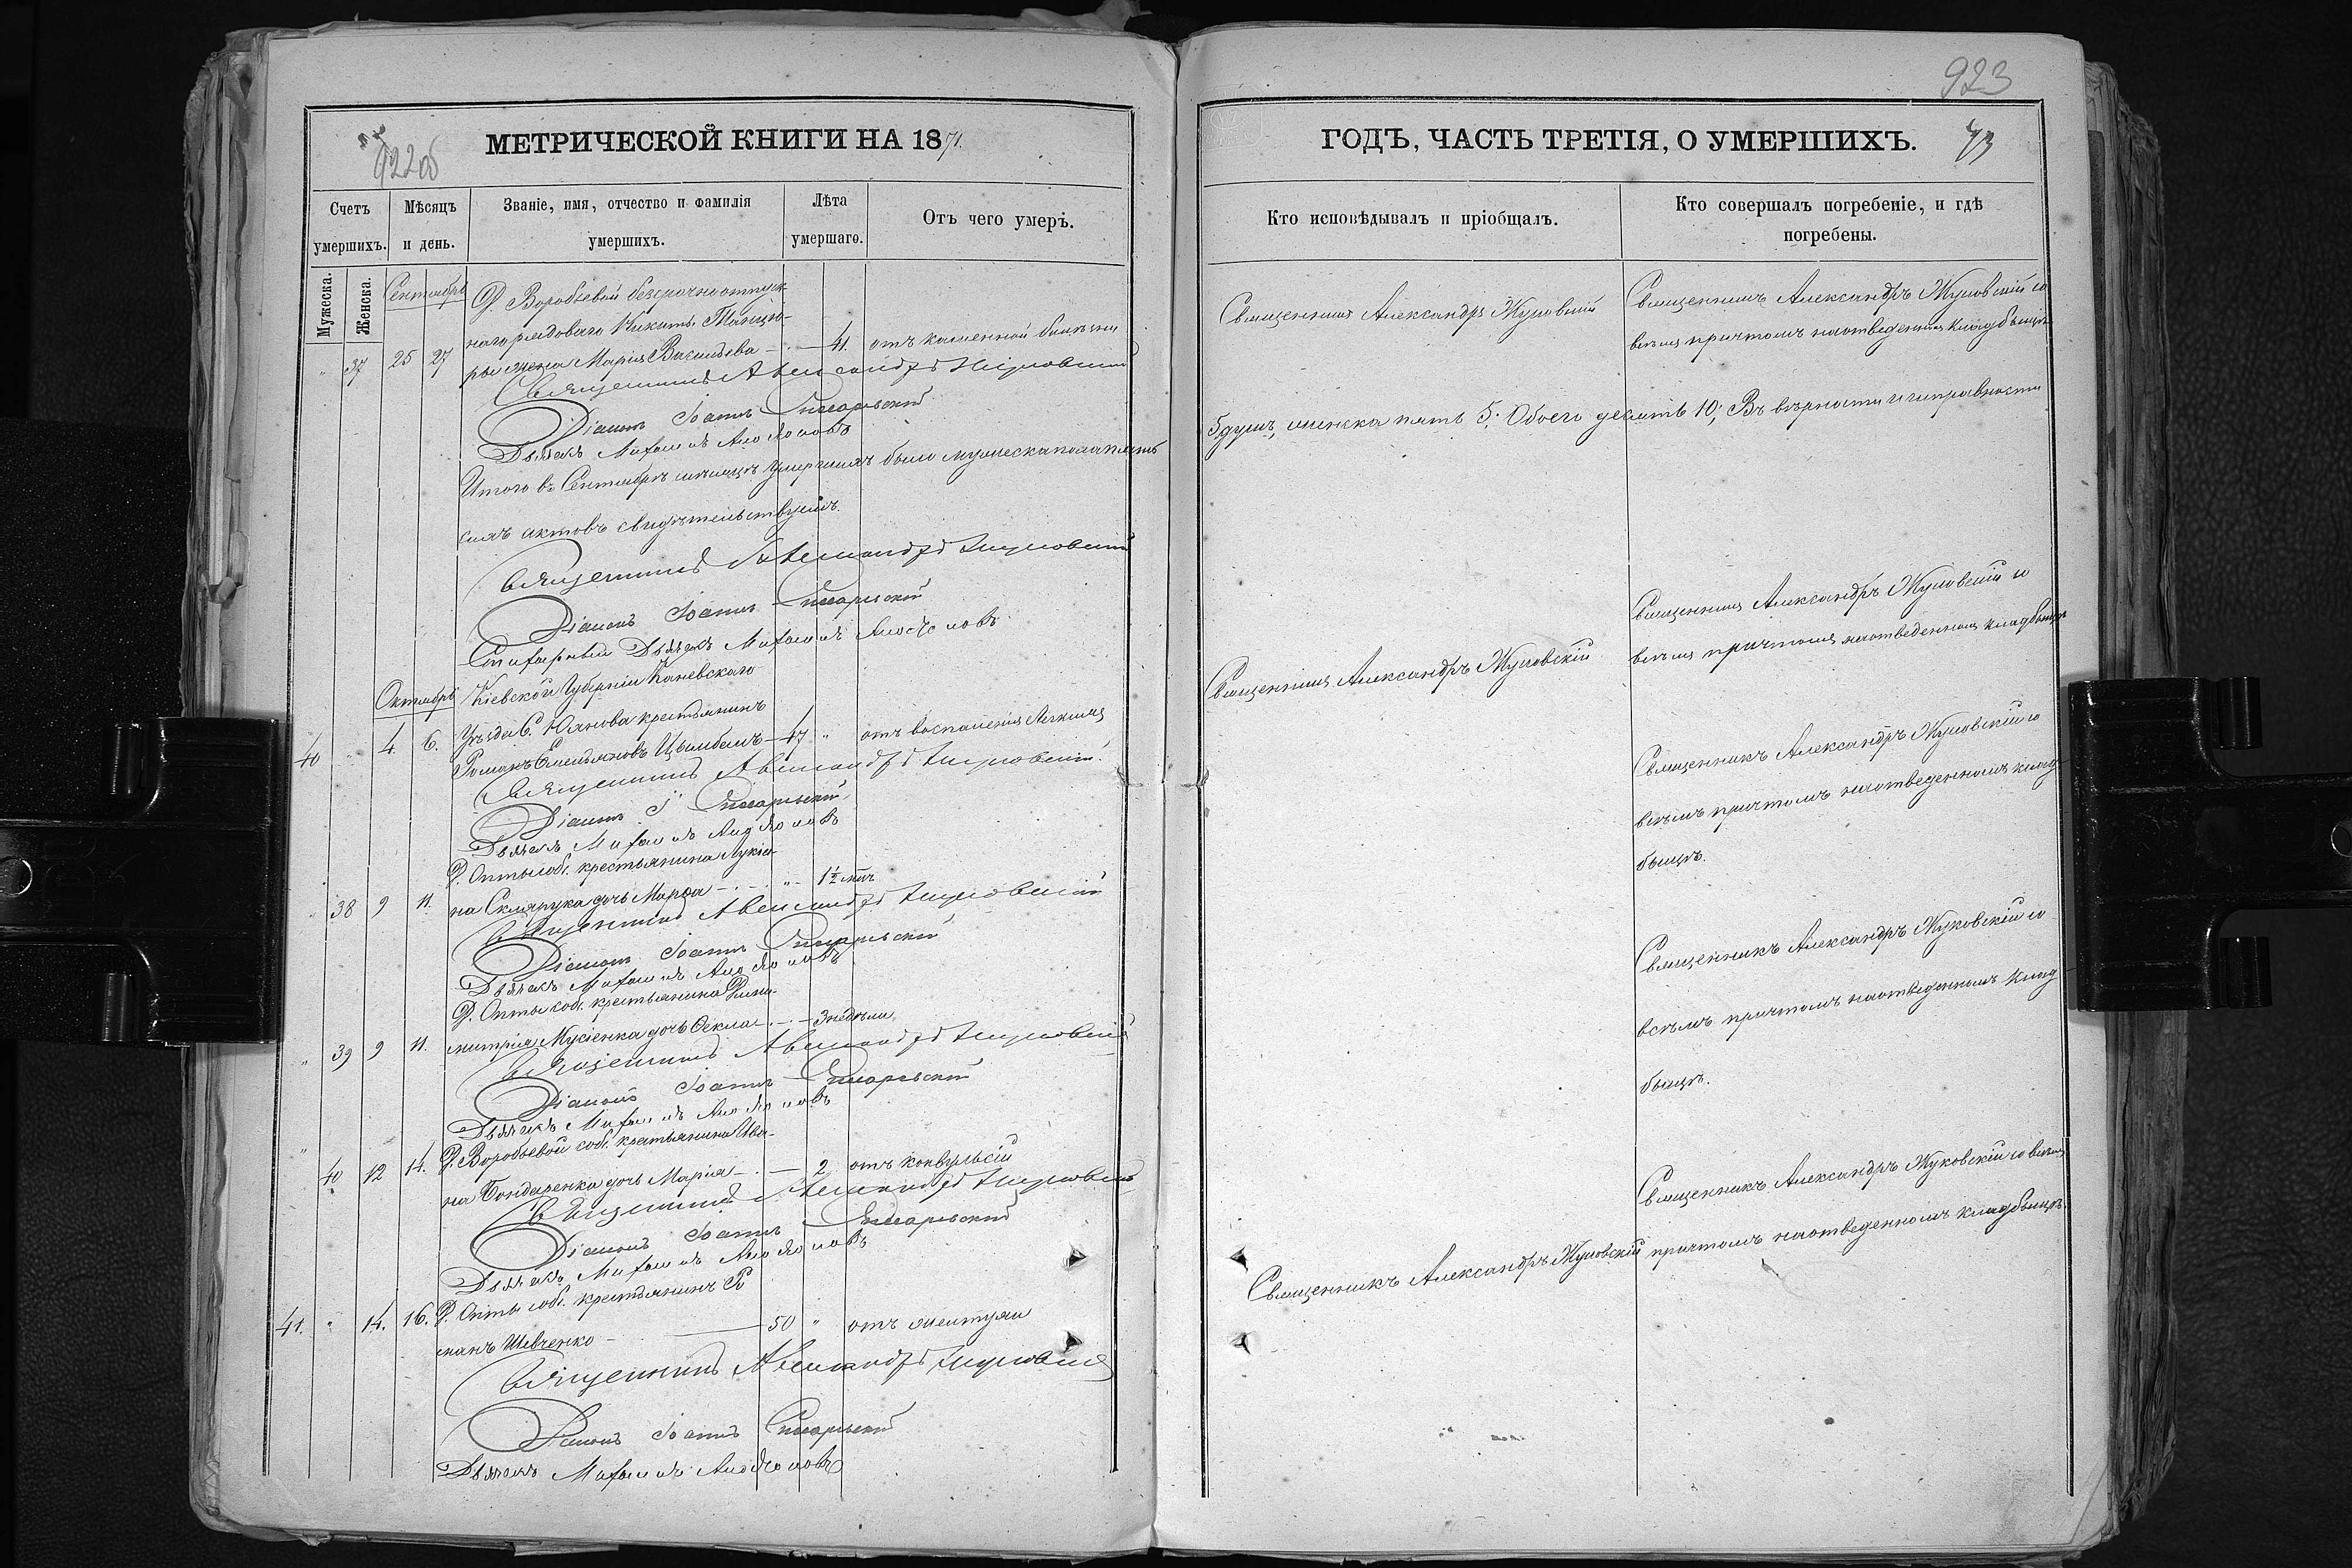 922об
МЕТРИЧЕСКОЙ КНИГИ НА 1871.
Счетъ умершихъ.
Мужеска.
Женска.
Мѣсяцъ и день.
Званіе, имя, отчество и фамилія умершихъ.
Лѣта умершаго.
Отъ чего умеръ.
Сентябрь
Д. Воробьевой безсрочноотпуск
наго рядоваго Никиты
" 37 25 27 ры жена Марія Васильева - 41. отъ каменной болезни
Священникъ Александръ Жуковскій
Діаконъ Іоаннъ
Дьячекъ
Итого въ Сентябрѣ мѣсяцѣ умершихъ было мужеска пола пять
сихъ актовъ свидѣтельствуемъ.
Священникъ Александръ Жуковскій
Діаконъ Іоаннъ
Дьячекъ
Октябрь Кіевской Губерніи Каневскаго
Уѣзда С. крестьянинъ
40 " 4. 6. Романъ Емельяновъ Цымбалъ - 47 " отъ воспаленія легкихъ
Священникъ Александръ Жуковскій.
Діаконъ І.
Дьячекъ
Д. соб. крестьянина Лукія-
" 38 9 11. на Склярука дочь Марѳа - " - 1½ мѣс
Священникъ Александръ Жуковскій
Діаконъ Іоаннъ
Дьячекъ
Д. соб. крестьянина
" 39 9 11. митрія Мусіенка дочь Ѳекла - 3 недѣли
Священникъ Александръ Жуковскій
Діаконъ Іоаннъ
Дьячекъ
Д. Воробьевой соб. крестьянина Ива-
" 40 12 14. на Бондаренка дочь Марія - 2 отъ конвульсіи
Священникъ Александръ Жуковскій
Діаконъ Іоаннъ
Дьячекъ
Д. соб. крестьянинъ Ро
41. " 14. 16. манъ Шевченко - 50 " отъ желтухи
Священникъ Александръ Жуковскій
Діаконъ Іоаннъ
Дьячекъ
923
ГОДЪ, ЧАСТЬ ТРЕТІЯ, О УМЕРШИХЪ. 43
Кто исповѣдывалъ и пріобщалъ.
Кто совершалъ погребеніе, и гдѣ погребены.
Священникъ Александръ Жуковскій
Священникъ Александръ Жуковскій со
всѣмъ причтомъ на отведенномъ кладбищѣ
5 душъ, женска пять 5; Обоего десять 10; Въ вѣрности и исправности
Священникъ Александръ Жуковскій
Священникъ Александръ Жуковскій со
всѣмъ причтомъ на отведенномъ кладбищѣ
Священникъ Александръ Жуковскій со
всѣмъ причтомъ на отведенномъ клад-
бищѣ.
Священникъ Александръ Жуковскій со
всѣмъ причтомъ на отведенномъ клад-
бищѣ.
Священникъ Александръ Жуковскій
Священникъ Александръ Жуковскій со всѣмъ
причтомъ на отведенномъ кладбищѣ.